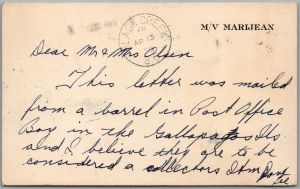 M/V MARIJEAN
CLAM CREEK
AP 13
Dear Mr & Mrs Olsen
This letter was mailed
from a barrel in Post Office
Bay in the Gallapagos Ils.
and I believe they are to be
considered a collectors Item